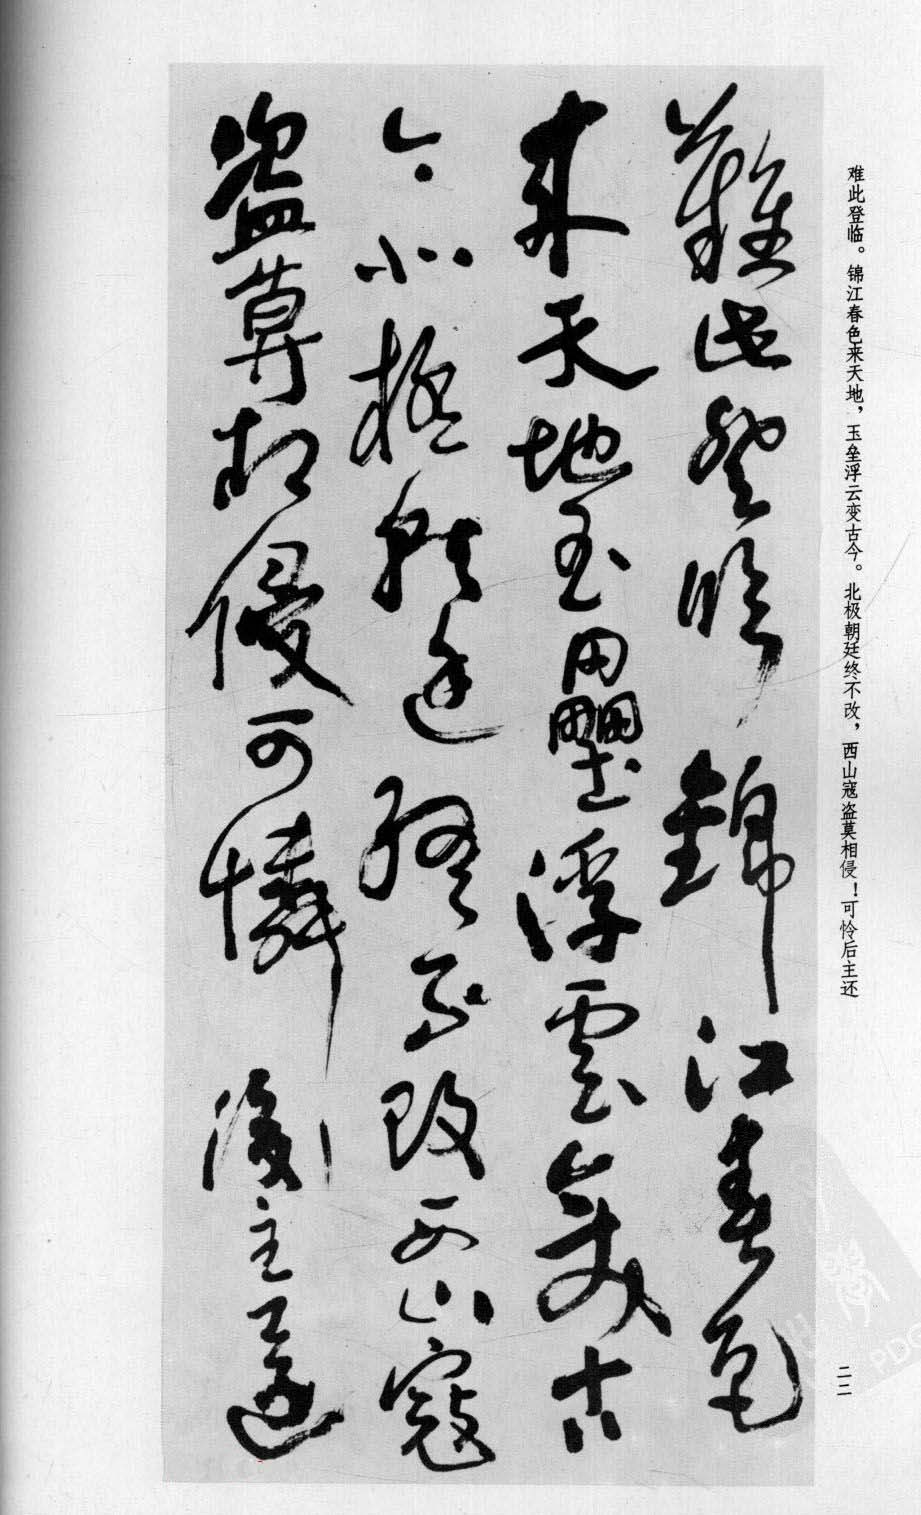 难此登临。锦江春色来天地，玉垒浮云变古今。北极朝廷终不改，西山寇盗莫相侵！可怜后主还
難此登臨錦江春色
来天地玉壘浮雲變古
今北極朝廷終不改西山寇
盗莫相侵可憐後主還
二二